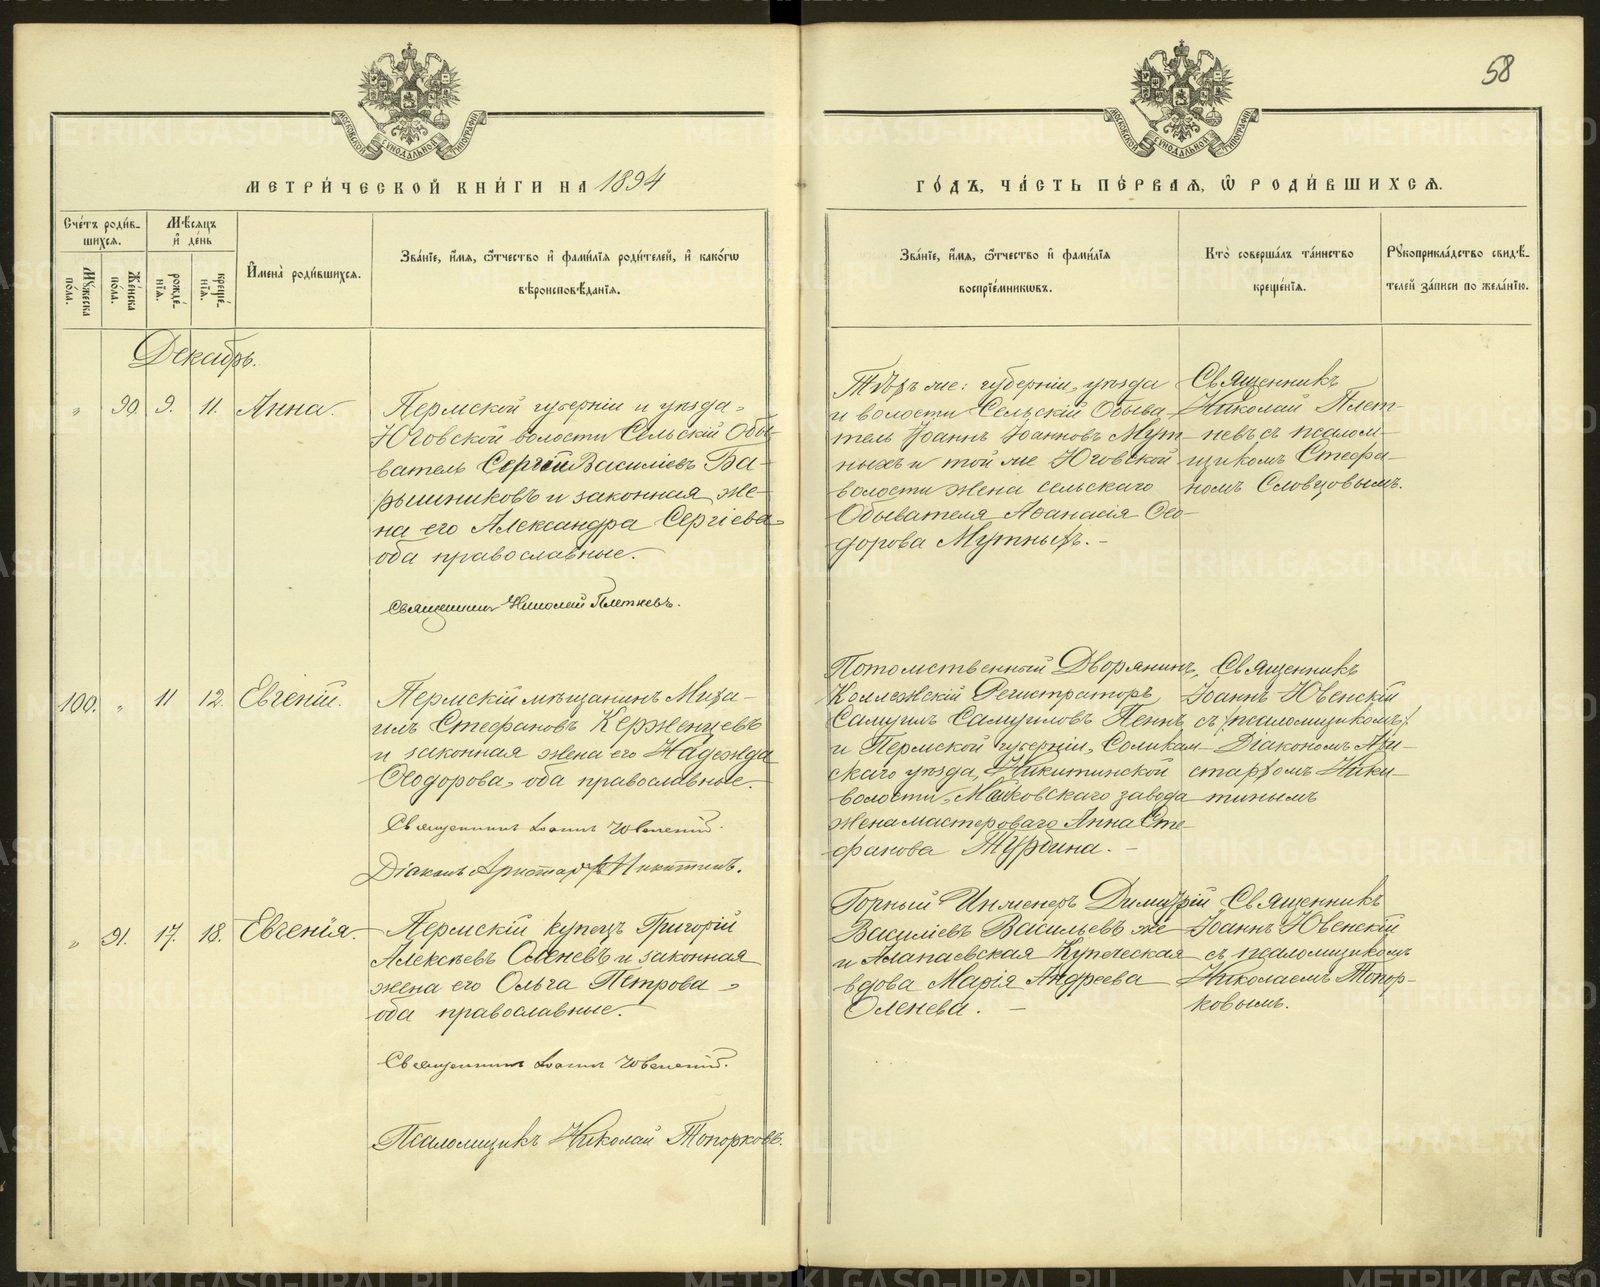 58
МЕТРИ́ЧЕСКОЙ КНИ́ГИ НА 1894
ГО́ДЪ, ЧА́СТЬ ПЕ́РВАЯ, Ѽ РОДИ́ВШИХСѦ.
Сче́тъ роди́в-
шихсѧ.
Мѣ́сѧцъ
и҆ де́нь
Мꙋ́жеска по́ла.
Же́нска по́ла.
рожде́-
нїѧ.
креще́-
нїѧ.
И҆мена̀ роди́вшихсѧ.
Зва́нїе, и҆́мѧ, ѻ҆́тчество и҆ фами́лїѧ роди́телей, и҆ како́гѡ
вѣроисповѣ́данїѧ.
Зва́нїе, и҆́мѧ, ѻ҆́тчество и҆ фами́лїѧ
воспрїе́мникѡвъ.
Кто̀ соверша́лъ та́инство
креще́нїѧ.
Рꙋкоприкла́дство свидѣ́-
телей за́писи по жела́нїю.
Декабрь.
" 90. 9. 11. Анна.
Пермской губерніи и уѣзда,
Юговской волости Сельскій Обы-
ватель Сергій Василіевъ Ба-
рышниковъ и законная же-
на его Александра Сергіева
оба православные.
Священникъ Николай Плетневъ.
Тѣхъ же: губерніи, уѣзда
и волости Сельскій Обыва-
тель Іоаннъ Іоанновъ Мут-
ныхъ и той же Юговской
волости жена сельскаго
Обывателя Аѳанасія Ѳео-
дорова Мутныхъ. -
Священникъ
Николай Плет-
невъ съ псалом-
щикомъ Стефа-
номъ Словцовымъ.
100. " 11 12. Евгеній.
Пермскій мѣщанинъ Миха-
илъ Стефановъ Керженцевъ
и законная жена его Надежда
Ѳеодорова, оба православные.
Священникъ Іоаннъ Ювенскій.
Діаконъ Аристархъ Никитинъ.
Потомственный Дворянинъ,
Коллежскій Регистраторъ
Самуилъ Самуиловъ Пеннъ
и Пермской губерніи, Соликам-
скаго уѣзда, Никитинской
волости, Майковскаго завода
жена мастероваго Анна Сте-
фанова Журбина. -
Священникъ
Іоаннъ Ювенскій
съ /псаломщикомъ/
Діакономъ Ари-
стархомъ Ники-
тинымъ
" 91. 17. 18. Евгенія.
Пермскій купецъ Григорій
Алексѣевъ Оленевъ и законная
жена его Ольга Петрова,
оба православные.
Священникъ Іоаннъ Ювенскій.
Псаломщикъ Николай Топорковъ.
Горный Инженеръ Димитрій
Василіевъ Васильевъ же
и Алапаевская Купеческая
вдова Марія Андреева
Оленева. -
Священникъ
Іоаннъ Ювенскій
съ псаломщикомъ
Николаемъ Топор-
ковымъ.